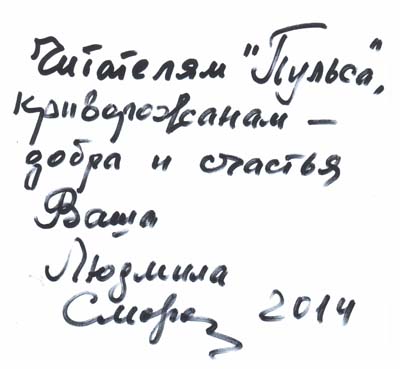 Читателям "Пульса",
криворожанам –
добра и счастья
Ваша
Людмила
2014